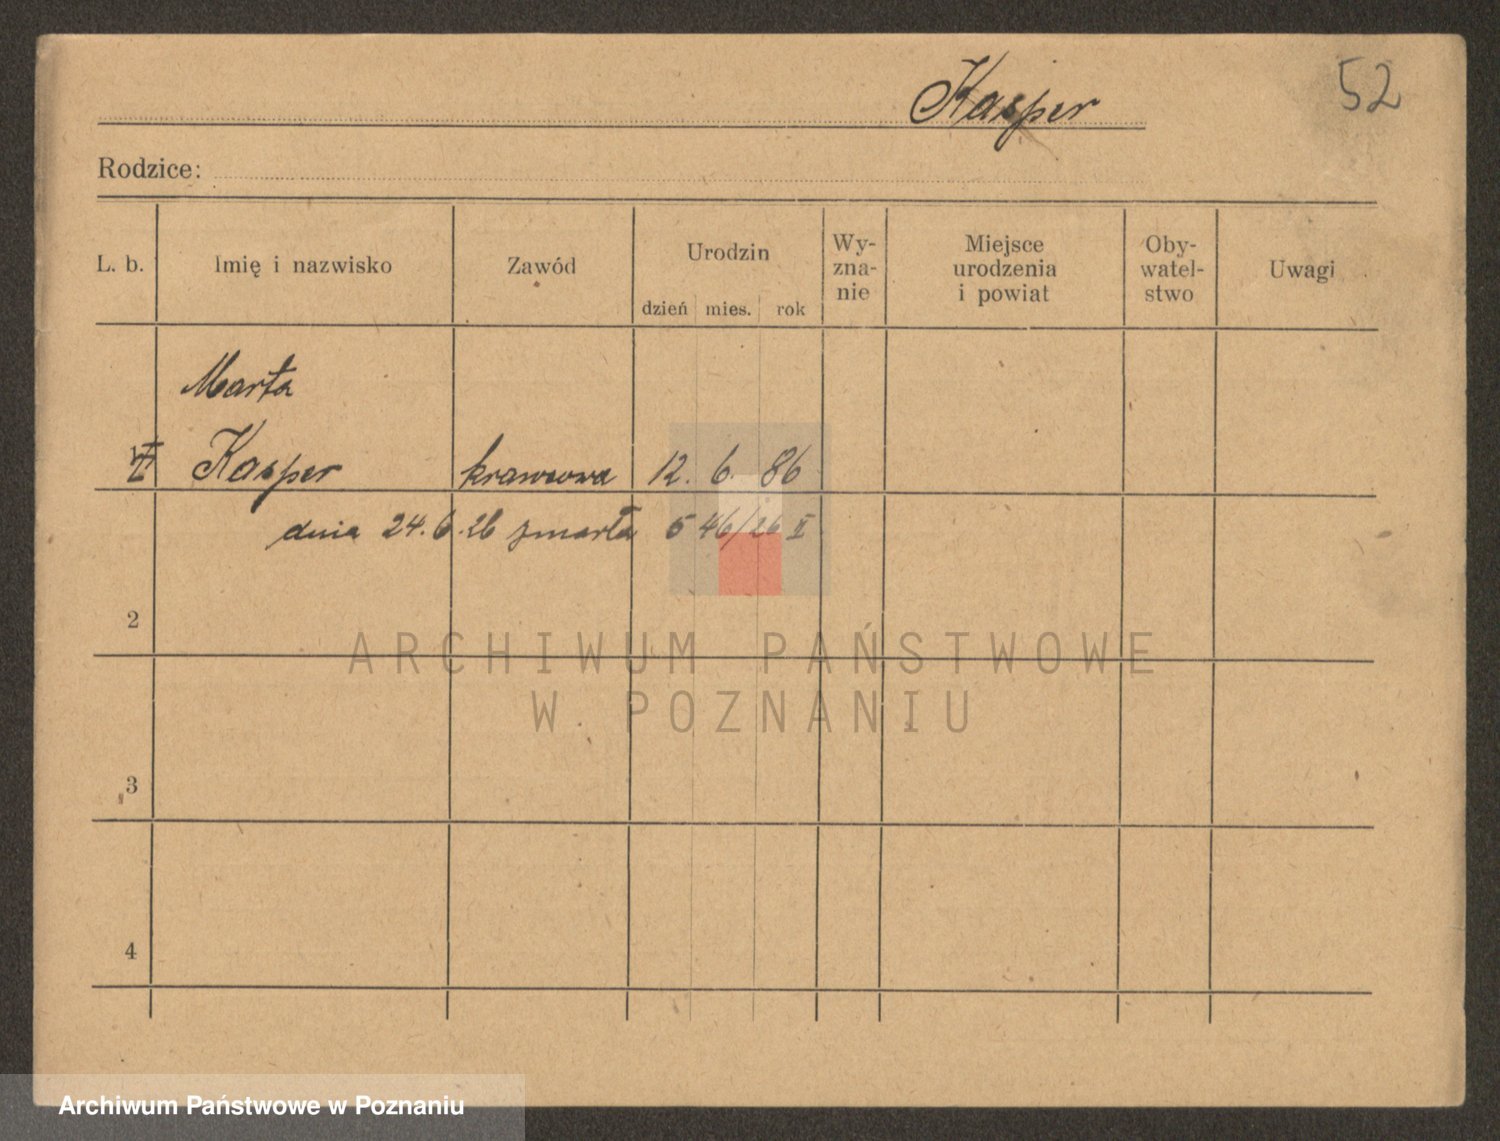 Kasper
52
Rodzice:
L. b.
Imię i nazwisko
Zawód
Urodzin
dzień mies. rok
Wy-
zna-
nie
Miejsce
urodzenia
i powiat
Oby-
watel-
stwo
Uwagi
Marta
Kasper krawcowa 12. 6. 86
dnia 24.6.26 zmarła 546/26 II
2
ARCHIWUM PAŃSTWOWE
W POZNANIU
3
4
Archiwum Państwowe w Poznaniu